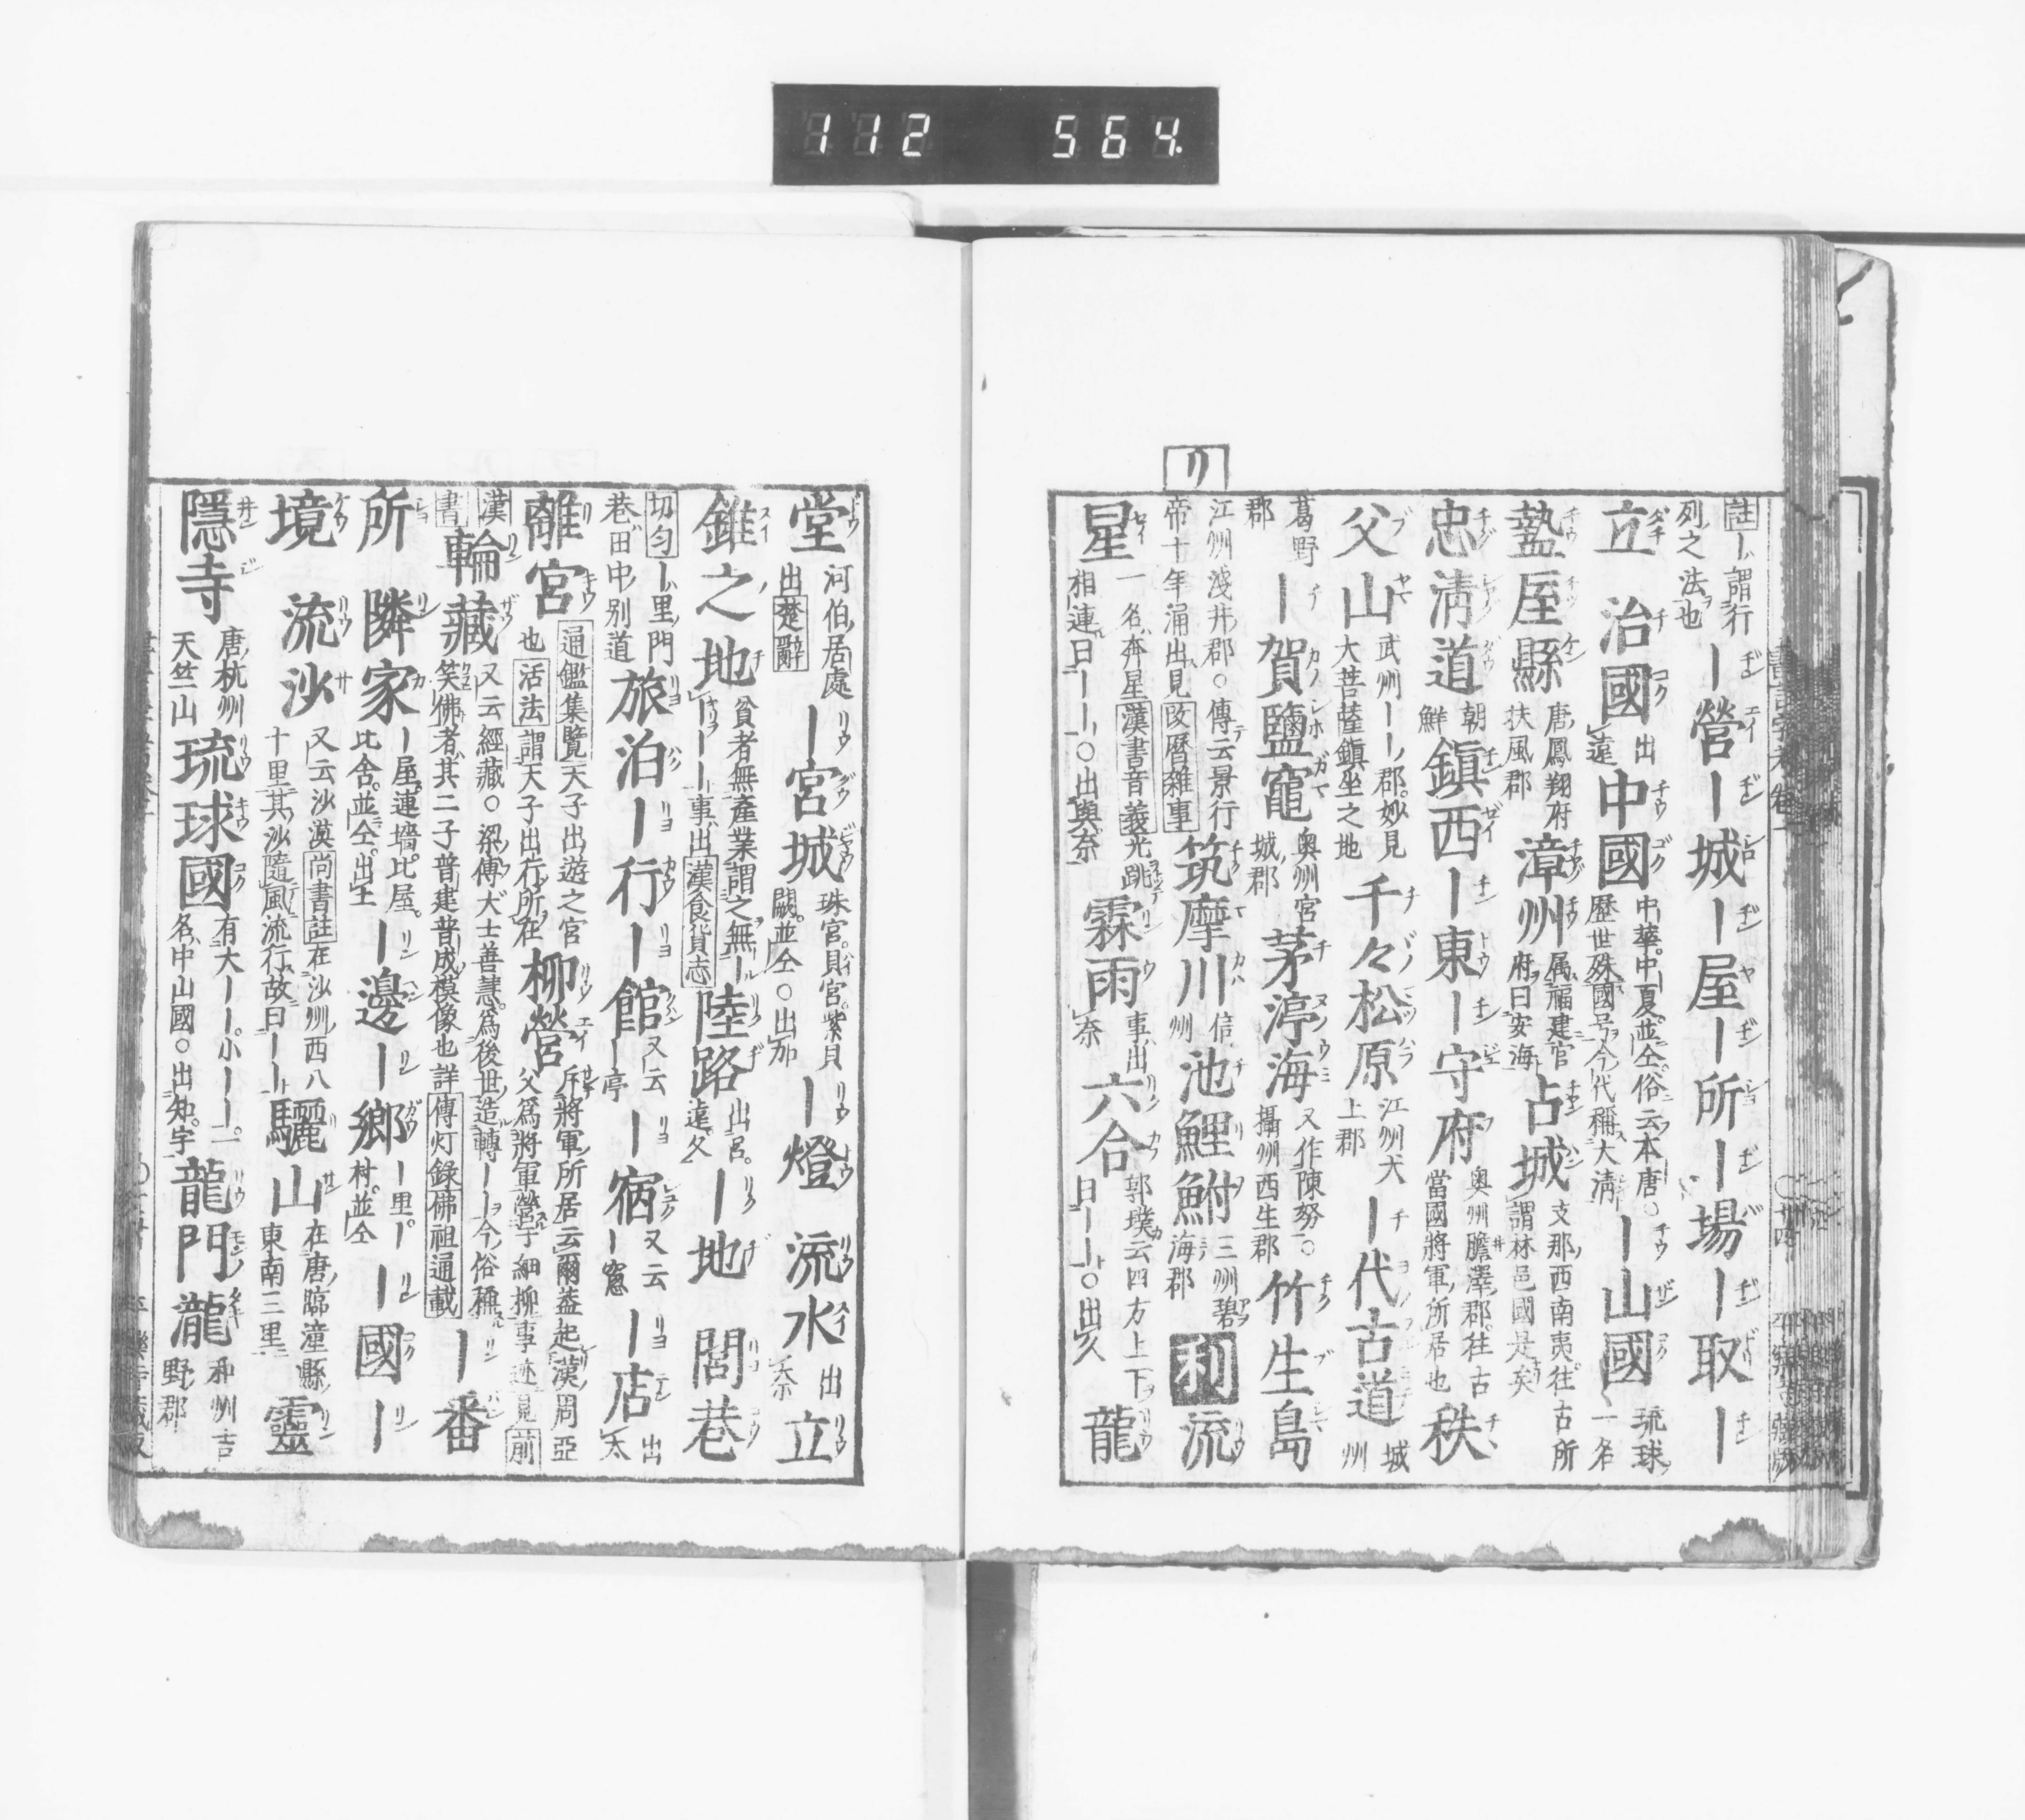 112 564.
註ー謂行列之法也 ー營ー城ー屋ー所ー場ー取ー
立 治國 出遠 中國 中華。中夏。並仝。俗云本唐。○歷世殊國号今代稱大淸 ー山國 琉球一名
盩厔縣 唐鳳翔府扶風郡 漳州 属福建官府曰安海 占城 支那西南夷。往古所謂林邑國是矣
忠淸道 朝鮮 鎭西ー東ー守府 奥州膽澤郡。往古當國將軍所居也 秩
父山 武州ーー郡。妙見大菩薩鎭坐之地 千々松原 江州犬上郡 ー代古道 城州
葛野郡 ー賀鹽竈 奥州宮城郡 茅渟海 又作陳努。○攝州西生郡 竹生島
江州淺井郡○傳云景行帝十年涌出見改曆雜事 筑摩川 信州 池鯉鮒 三州碧海郡
リ
利 流
星 一名奔星漢書音義光跳相連曰ーー○出與奈 霖雨 事出奈 六合 郭璞云四方上下曰ーー○出久 龍
堂 河伯居處出楚辭 ー宮城 珠宮。貝宮。紫貝闕。並仝○出加 ー燈 流水 出奈 立
錐之地 貧者無產業謂之無ーーー事出漢食貨志 陸路 出呂。遠。久 ー地 閭巷
切匀ー里門巷田中別道 旅泊ー行ー館 又云ー亭 ー宿 又云ー窓 ー店 出太
離宮 通鑑集覽天子出遊之宮也活法謂天子出行所在 柳營 斥將軍所居云爾葢起漢周亞父爲將軍營于細柳事迹見前
漢書 輪藏 又云經藏○梁傅大士善慧爲後世造轉ーー今俗稱笑佛者其二子普建普成模像也詳傳灯録佛祖通載 ー番
所 隣家 ー屋。連墻。比屋。比舍。並仝。出土 ー邊ー鄉 ー里。ー村。並仝 ー國ー
境 流沙 又云沙漠尚書註在沙州西八十里其沙隨風流行故曰ーー 驪山 在唐臨潼縣東南三里 靈
隱寺 唐杭州天竺山 琉球國 有大ーー。小ーー。一名中山國○出知。宇 龍門瀧 和州吉野郡